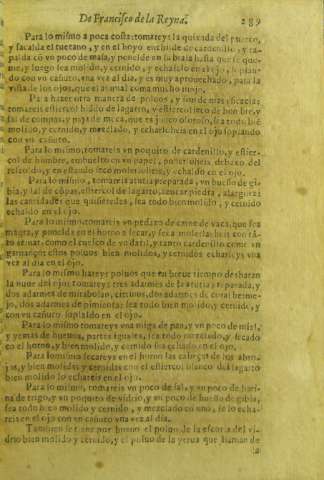 De Francisco de la Reyna. 289
Para lo mismo a poca costa: tomareys la quixada del puerco,
y sacalda el tuetano, y en el hoyo
y luego sea molido, y cernido, y echarlo en el ojo, soplan-
do con vn cañuto, vna vez al dia, y es muy aprouechado, para la
vista de los ojos, que el animal coma mucho
Para hazer otra manera de poluos, y son de mas eficacia:
tomareis estiercol blãco de lagarto, y estiercol seco de hombre, y
sal de compas, y
molido, y cernido, y mezclado, y echarlo heis en el ojo soplando
con vn cañuto.
Para lo mismo, tomareis vn poquito de cardenillo, y estier-
col de hombre, embuelto en vn papel, debaxo del
rescoldo, y en estando seco molerloheis, y echaldo en el ojo.
Para lo mismo, tomareis atutia preparada, vn huesso de gi-
bia, y sal de cõpas, estiercol de lagarto, açucar piedra,
las cantidades que quisieredes, sea todo bien molido, y cernido
echaldo en el ojo.
Para lo mismo, tomareis vn pedaço de carne de vaca, que sea
magra, y poneldo en el horno a secar, y seca
como el cuesco de vn datil, y tanto cardenillo como vn
garuanço: estos poluos bien molidos, y cernidos echareis vna
vez al dia en el ojo.
Para lo mismo hareys poluos que en breue tiempo desharan
la nuue del ojo: tomareys tres adarmes de la atutia preparada, y
dos adarmes de mirabolan, citrinos, dos adarmes de coral berme-
jo, dos adarmes de pimienta: sea todo bien molido, y cernido, y
con vn cañuto soplaldo en el ojo.
Para lo mismo tomareys vna miga de pan, y vn poco de miel,
y yemas de hueuos, partes iguales, sea todo mezclado, y secado
en el horno, y bien molido, y cernido sea echado en el ojo.
Para lo mismo secareys en el horno las cabeças de los abue-
jos, y bien molidas y cernidas con el estiercol blanco del lagarto
bien molido lo echareis en el ojo.
Para lo mismo, tomareis vn poco de sal, y vn poco de hari-
na de trigo, y vn poquito de vidrio, y vn poco de huesso de gibia,
sea todo seco molido y cernido, y mezclado en vno, se lo echa-
reis en el ojo con vn cañuto vna vez al dia.
Tambien se tiene por bueno el poluo de la escoria del vi-
drio bien molido y cernido, y el poluo de la yerua que llaman de
la